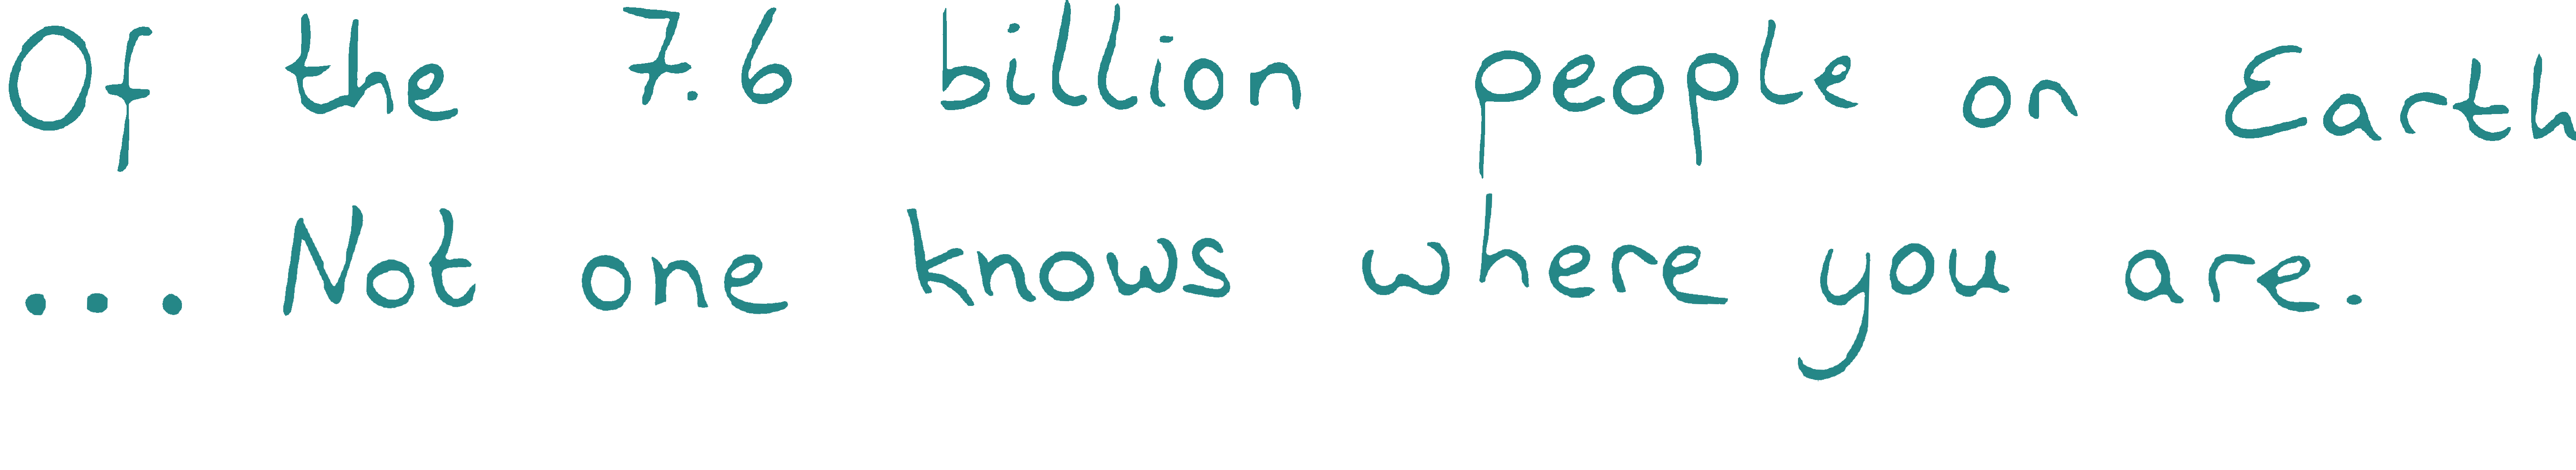 Of the 7.6 billion people on Earth
... Not one knows where you are.